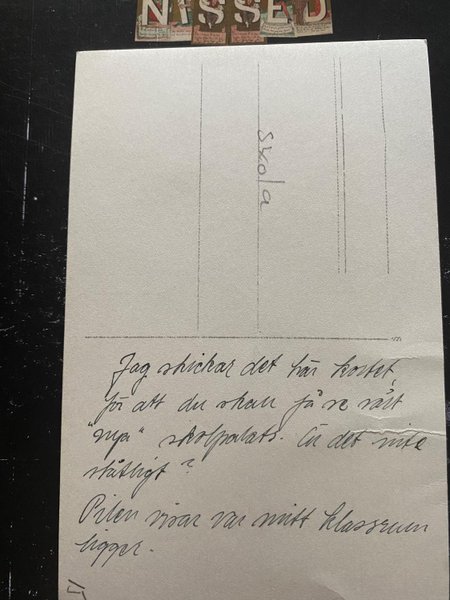 NISSED
Skola
Jag skickar det här kortet,
för att du skall få se vårt
"nya" skolpalats. Är det inte
ståtligt?
Pilen visar var mitt klassrum
ligger.